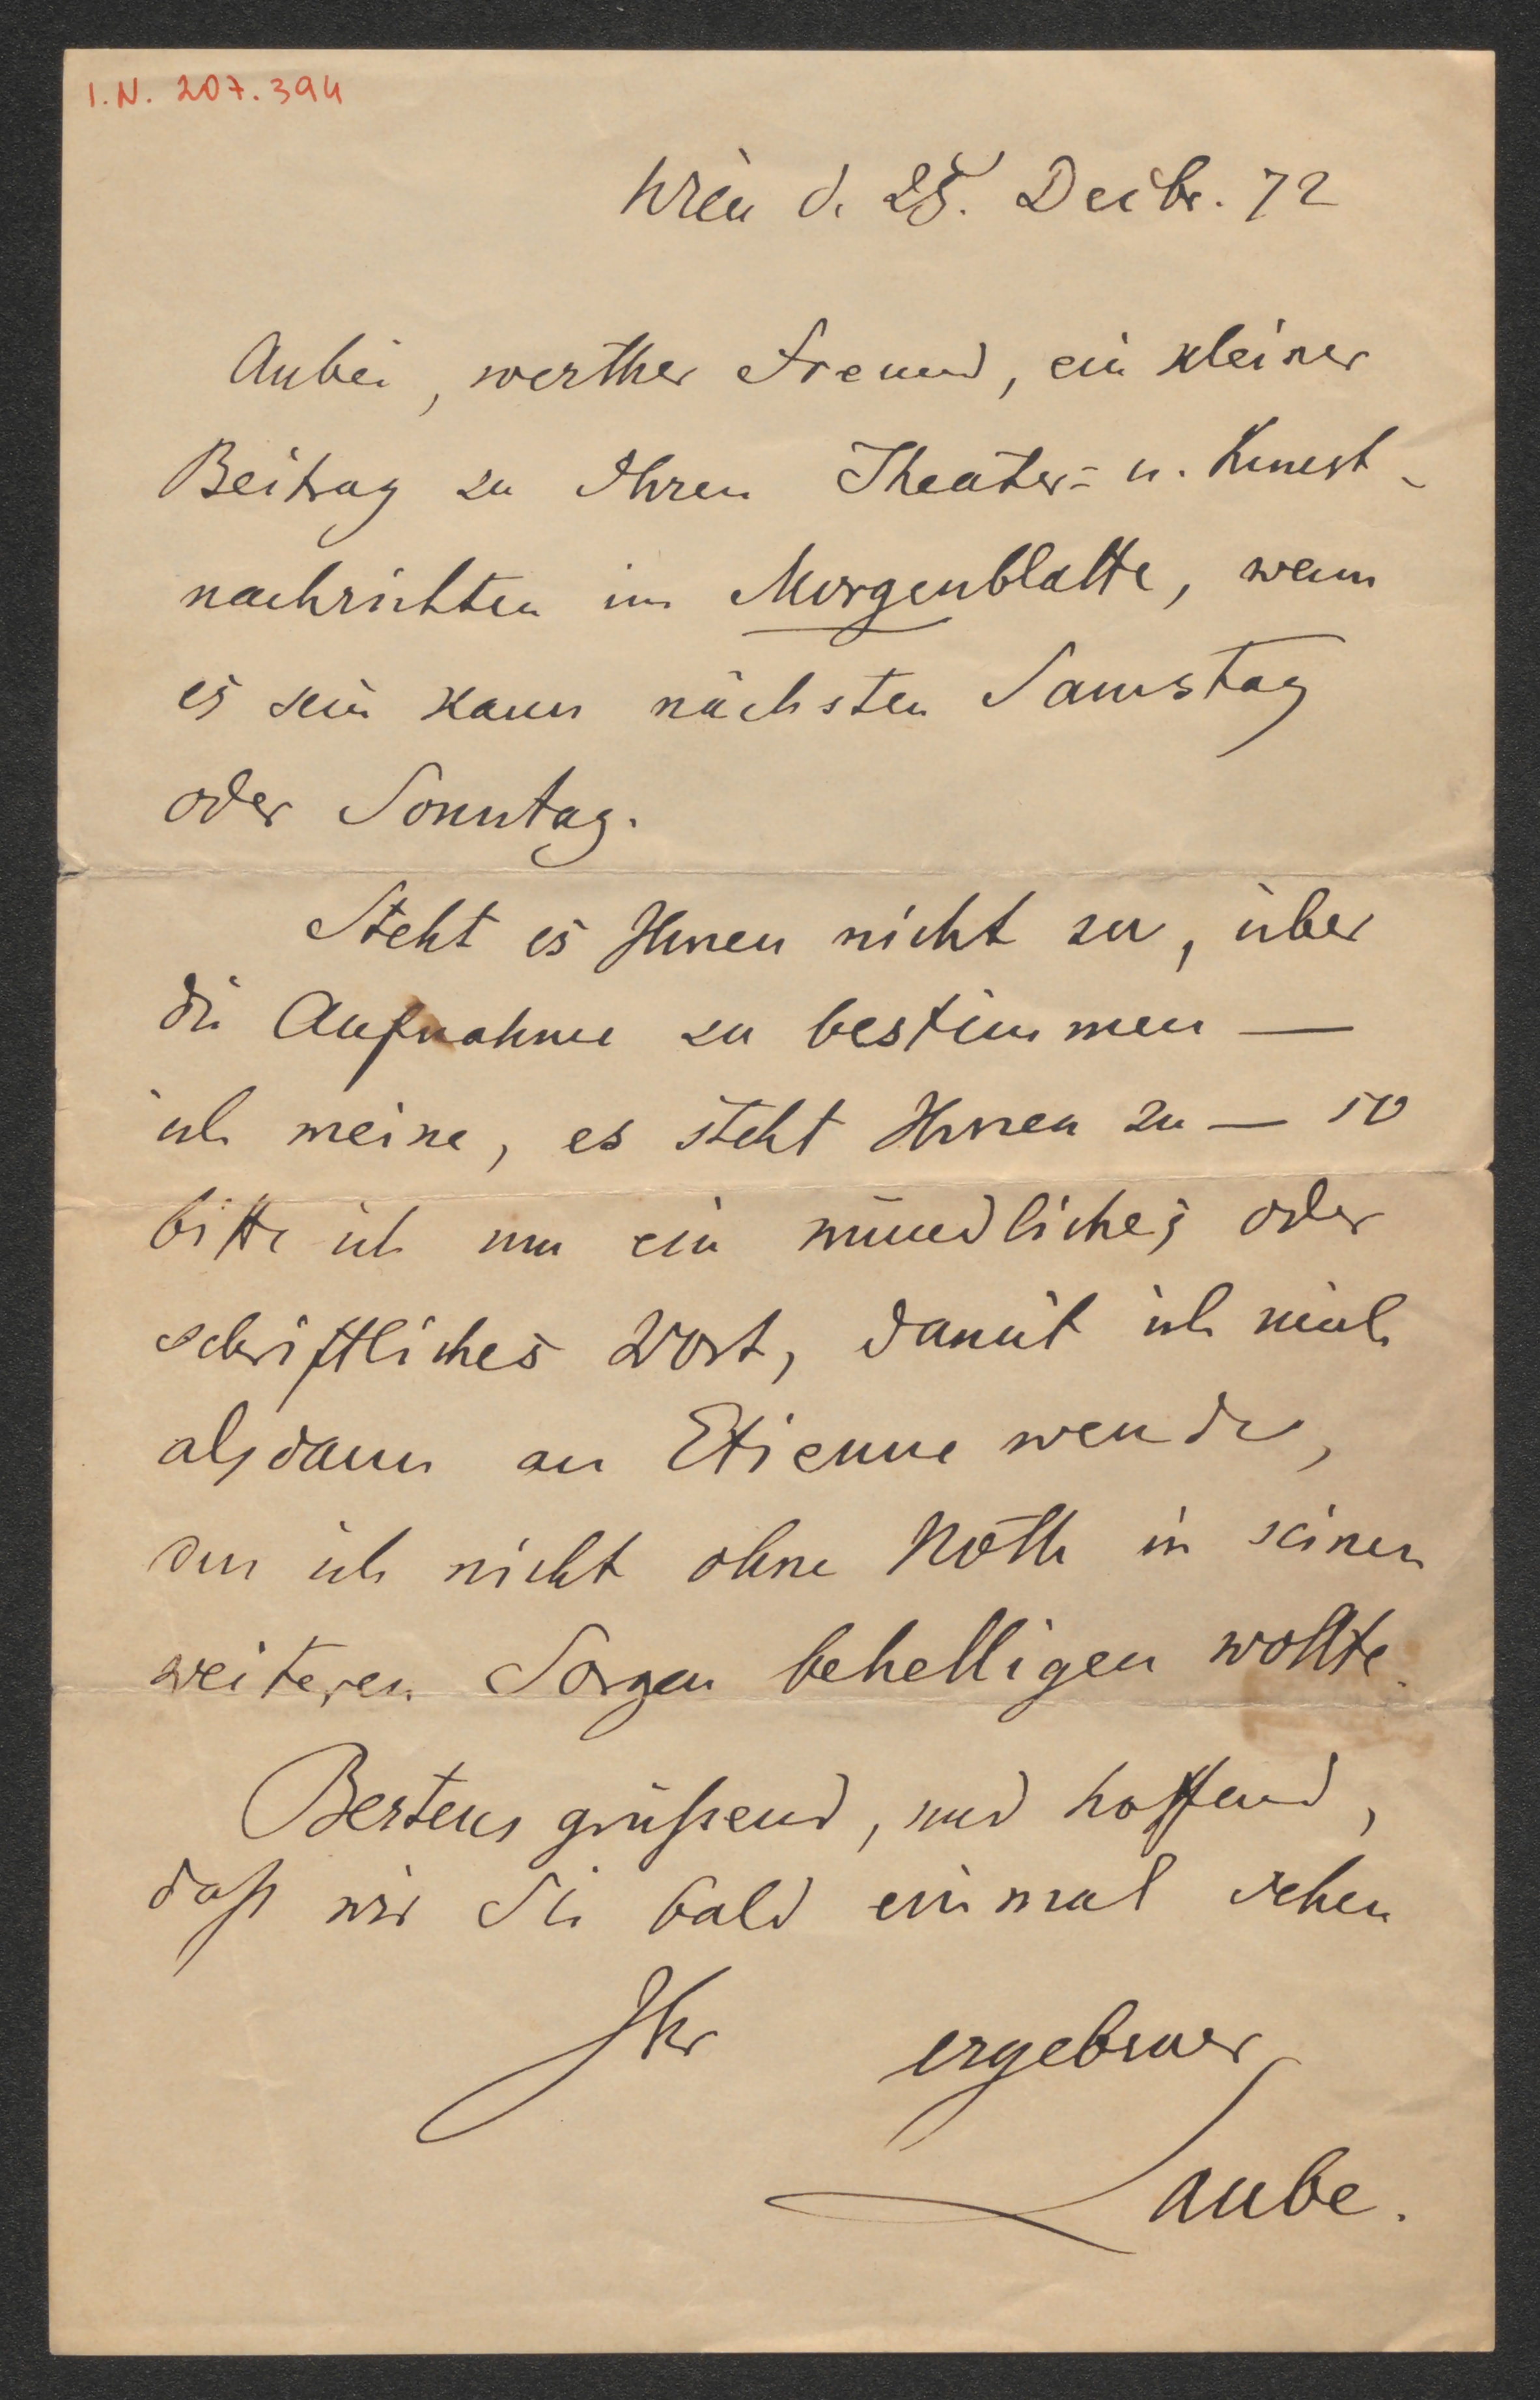 I.N. 207.394
Wien d. 25. Decbr. 72
Anbei, werther Freund, ein kleiner
Beitrag zu Ihren Theater= u. Kunst-
nachrichten im Morgenblatte, wenn
es sein kann nächsten Samstag
oder Sonntag.
Steht es Ihnen nicht zu, über
die Aufnahme zu bestimmen —
ich meine, es steht Ihnen zu — so
bitte ich um ein mündliches oder
schriftliches Wort, damit ich mich
alsdann an Etienne wende,
den ich nicht ohne Noth in seinen
weiteren Sorgen behelligen wollte.
Bestens grüßend, und hoffend,
daß wir Sie bald einmal sehen
Ihr ergebener
Laube.